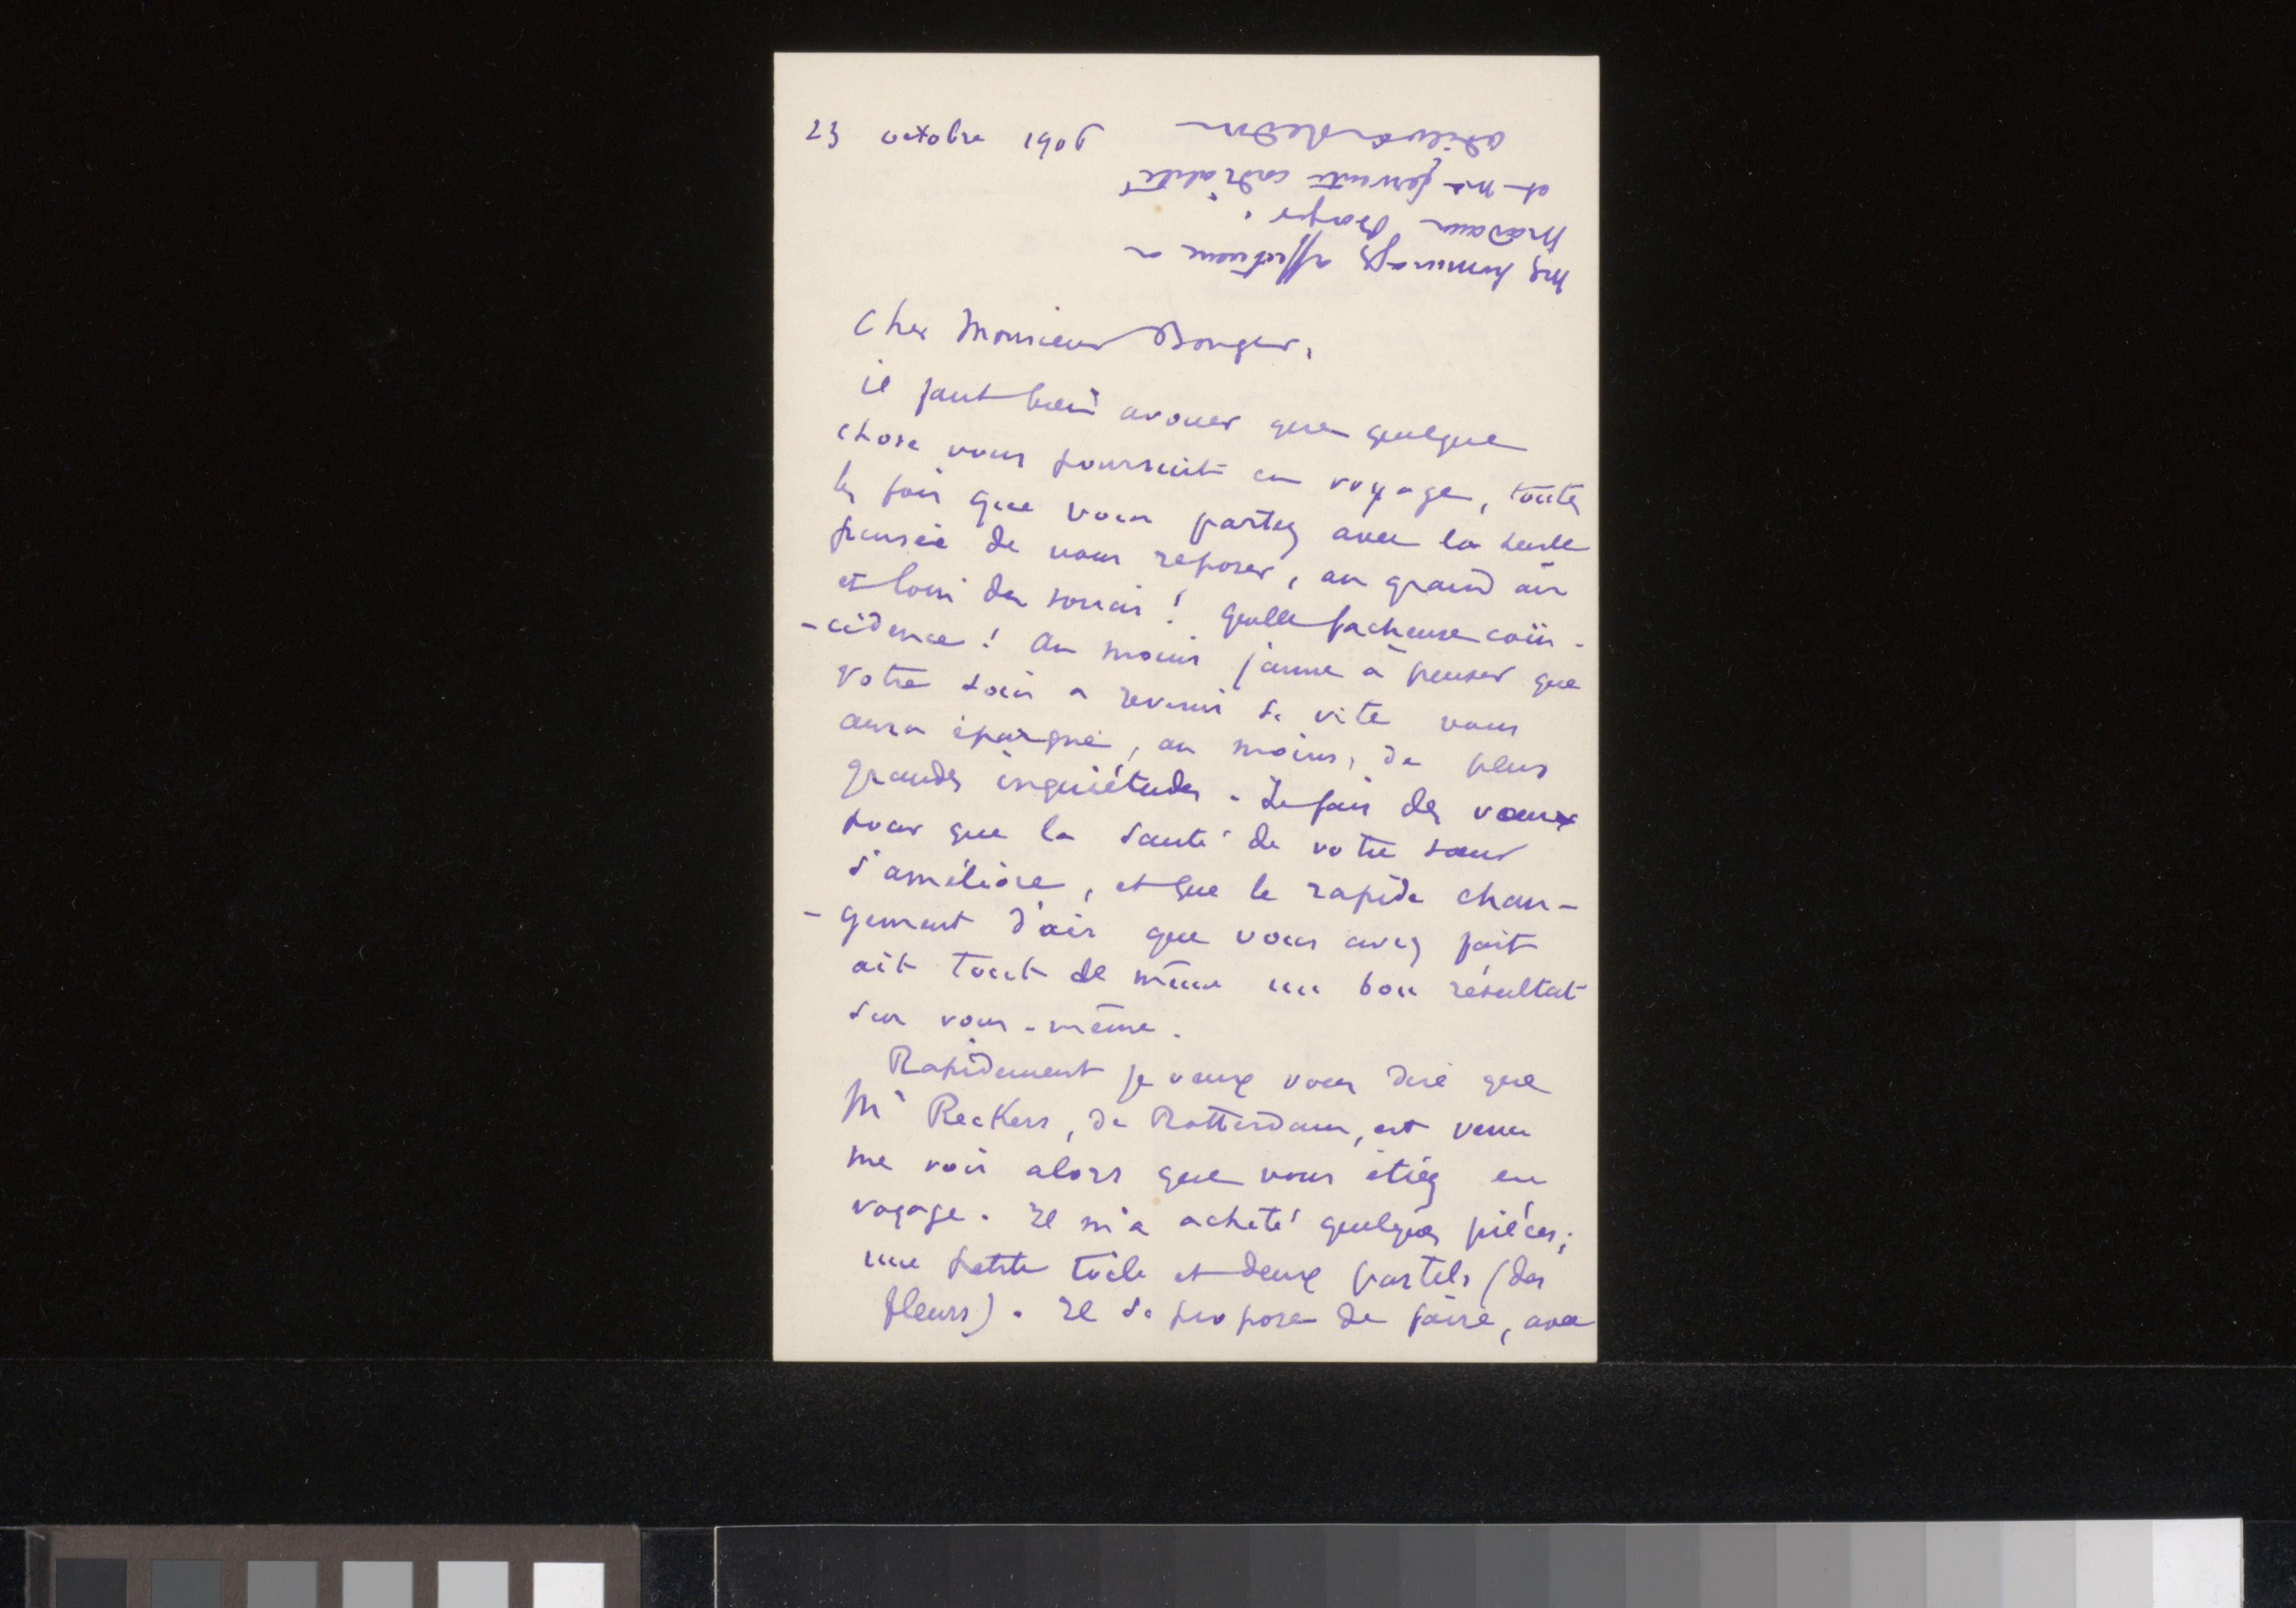 23 octobre 1906
Cher Monsieur Bonger,
il faut bien avouer que quelque
chose vous poursuit en voyage, toutes
les fois que vous partez avec la seule
pensée de vous reposer, au grand air
et loin des soucis ! Quelle facheuse coïn-
-cidence ! Au moins j'aime à penser que
votre soin a revenir si vite vous
aura épargné, au moins, de plus
grandes inquiétudes. Je fais des vœux
pour que la santé de votre sœur
s'améliore, et que le rapide chan-
-gement d'air que vous avez fait
ait tout de même un bon résultat
sur vous-même.
Rapidement je veux vous dire que
Mr Reckers, de Rotterdam, est venu
me voir alors que vous étiez en
voyage. Il m'a acheté quelques pièces;
une petite toile et deux pastels (des
fleurs). Il se propose de faire, avec
Mes hommages affectueux a
Madame Bonger,
et ma fervente cordialité
Odilon Redon